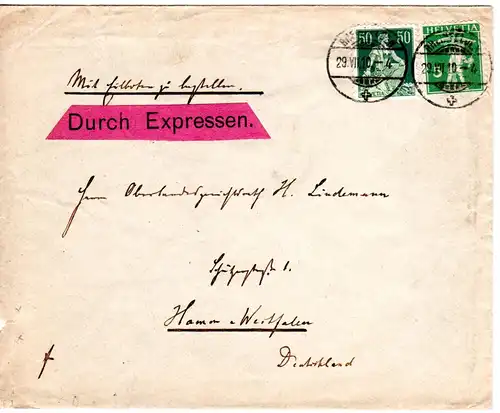 50 50 HELVETIA
29.VII.10.-4 29.VII.10.-4
5
Mit Eilboten zu bestellen.
Durch Expressen.
Herrn Oberlandesgerichtsrath H. Lindemann
Schützenstraße 1.
Hamm i. Westfalen
Deutschland